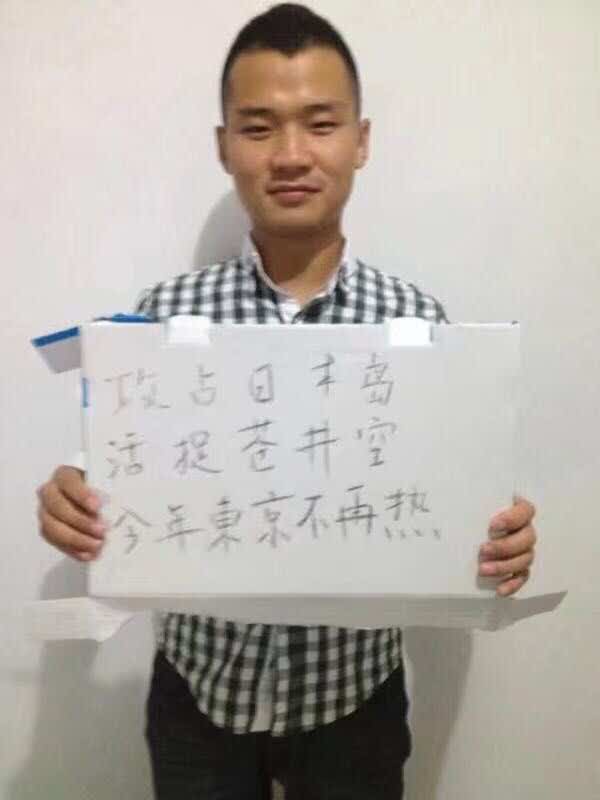 攻占日本島
活捉苍井空
今年東京不再热